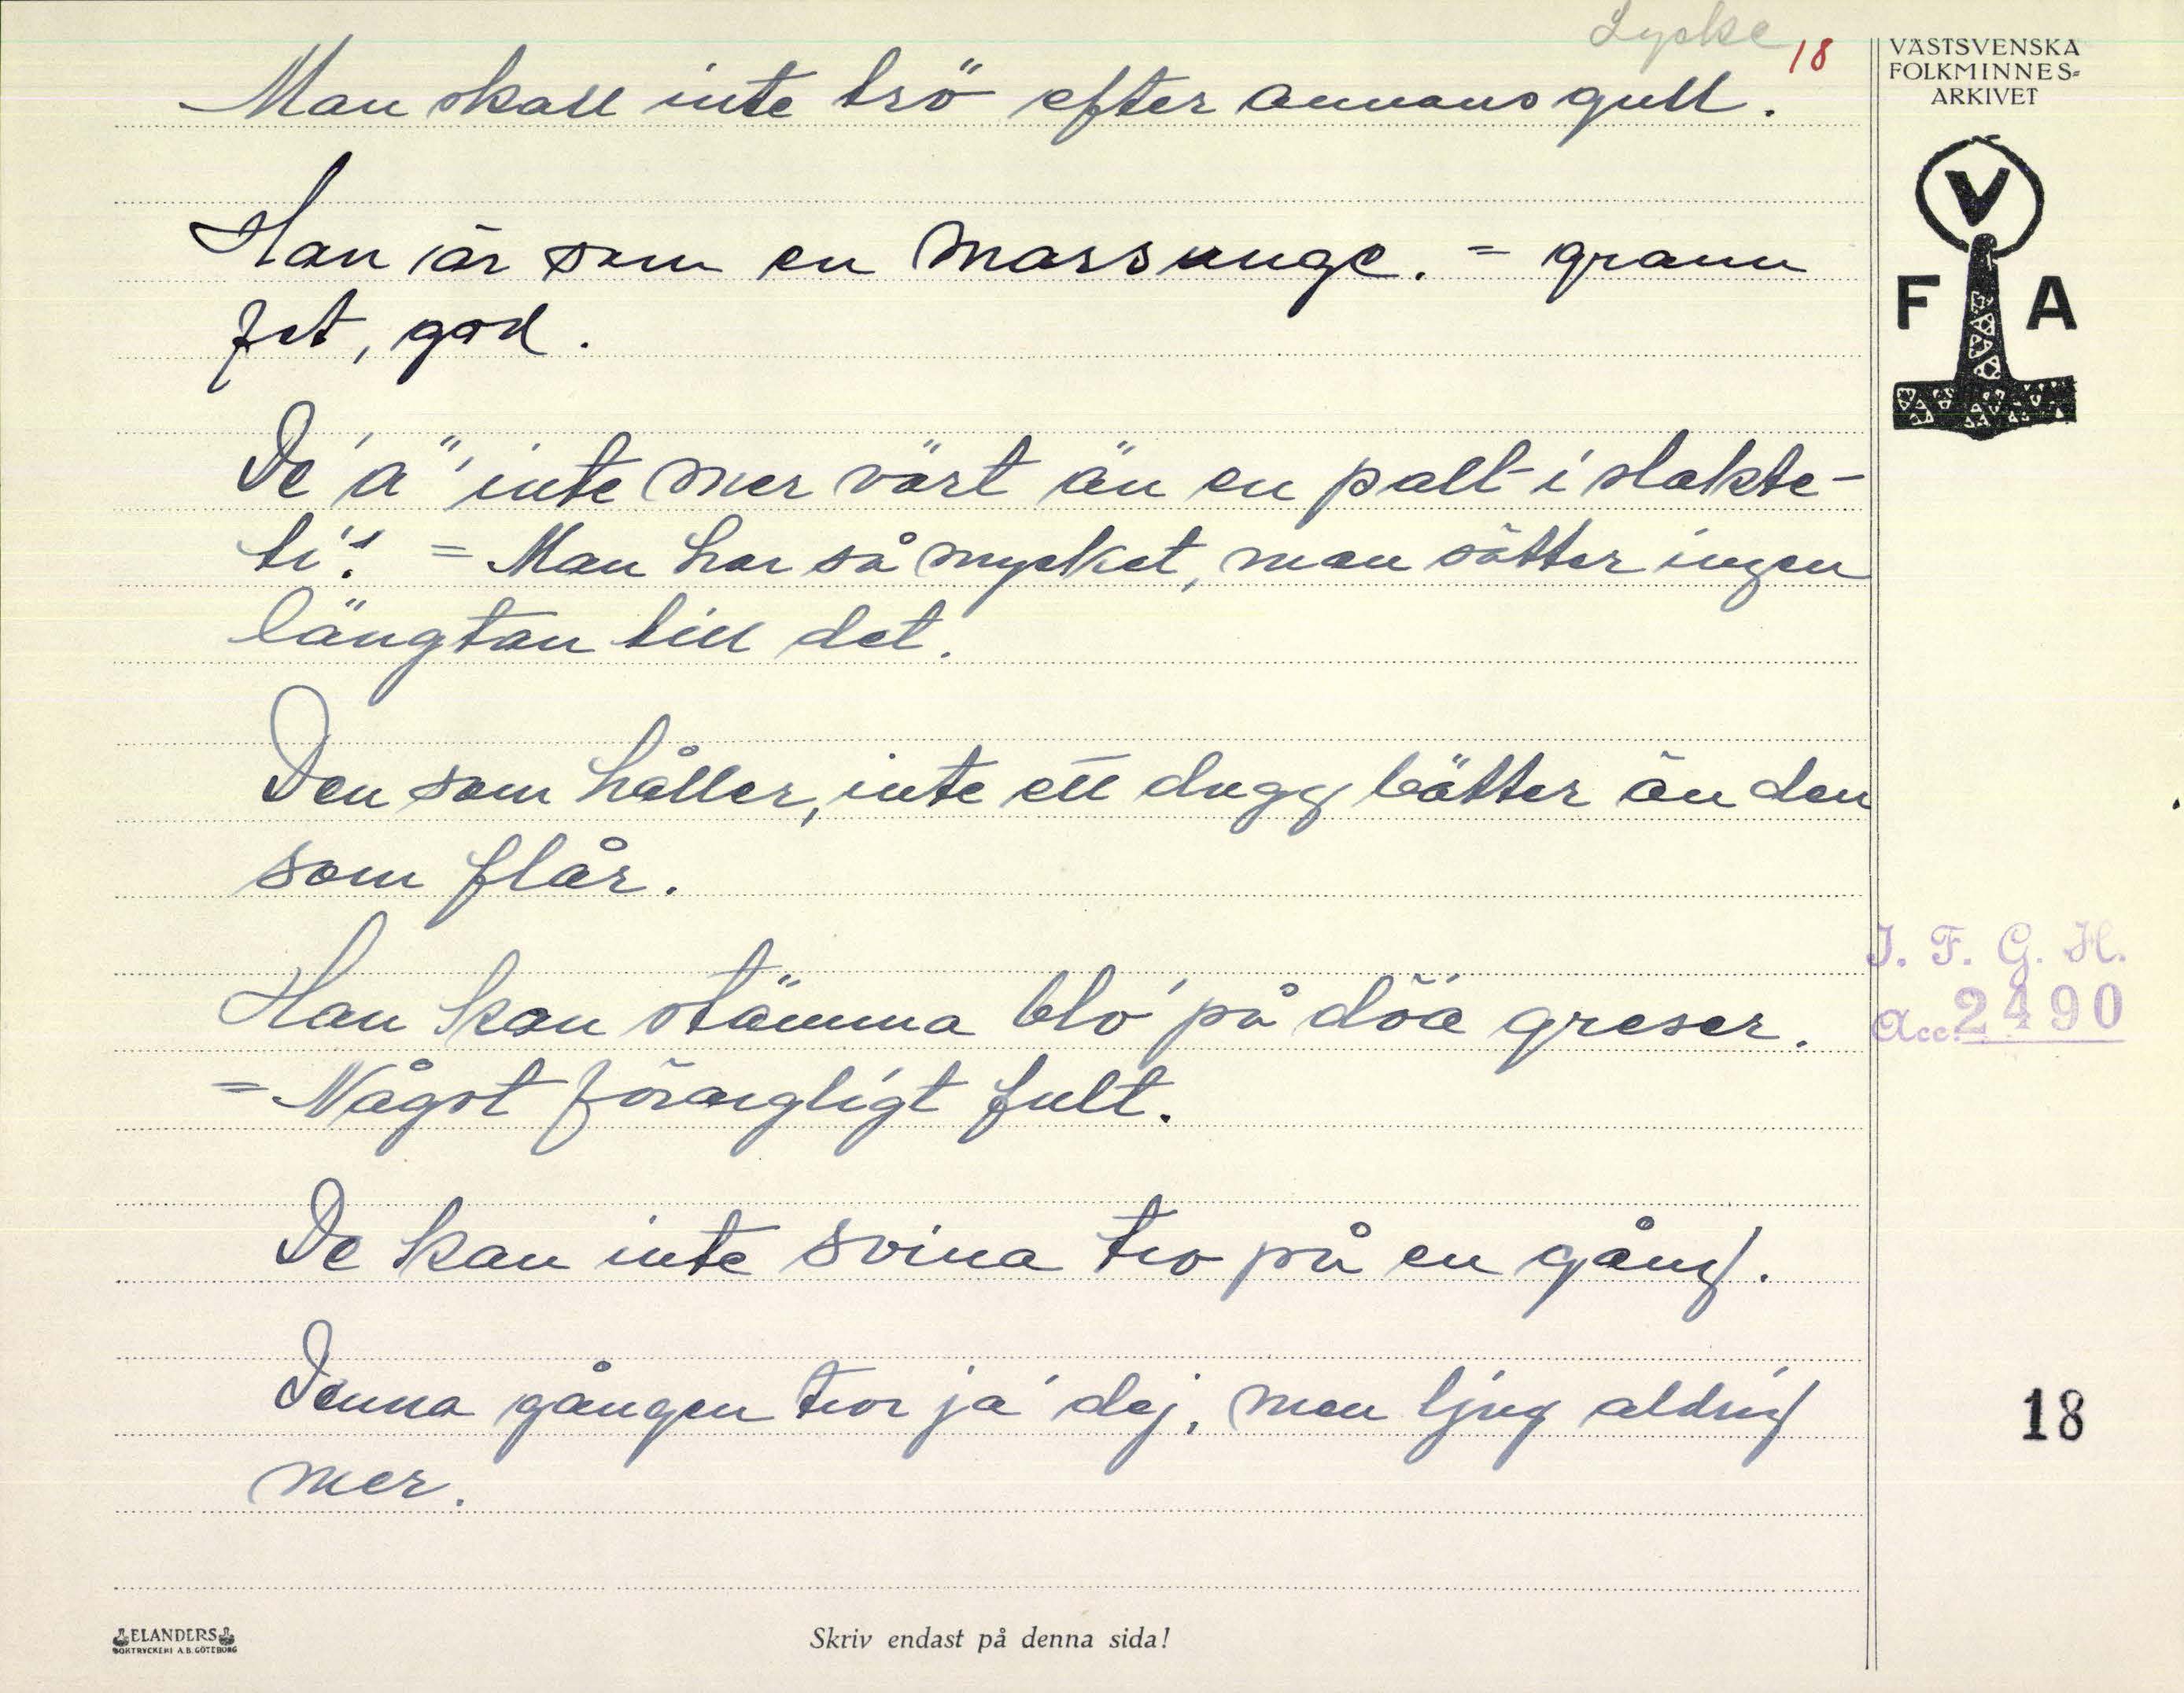 Lycke 18
Man skall inte trö efter annans gull.
Han är som en marsunge. = grann
fet, god.
De' ä' inte mer värt än en palt i slakte-
ti'. = Man har så mycket, man sätter ingen
längtan till det.
Den som håller, inte ett dugg bätter än den
som flår.
Han kan stämma blo' på döa greser.
= Något förargligt fult.
De kan inte svina tro på en gång.
Denna gången tror ja' dej, men ljug aldrig
mer.
VÄSTSVENSKA
FOLKMINNES-
ARKIVET
V
F A
I. F. G. H.
Acc. 2490
18
ELANDERS
BOKTRYCKERI A.B. GÖTEBORG
Skriv endast på denna sida!